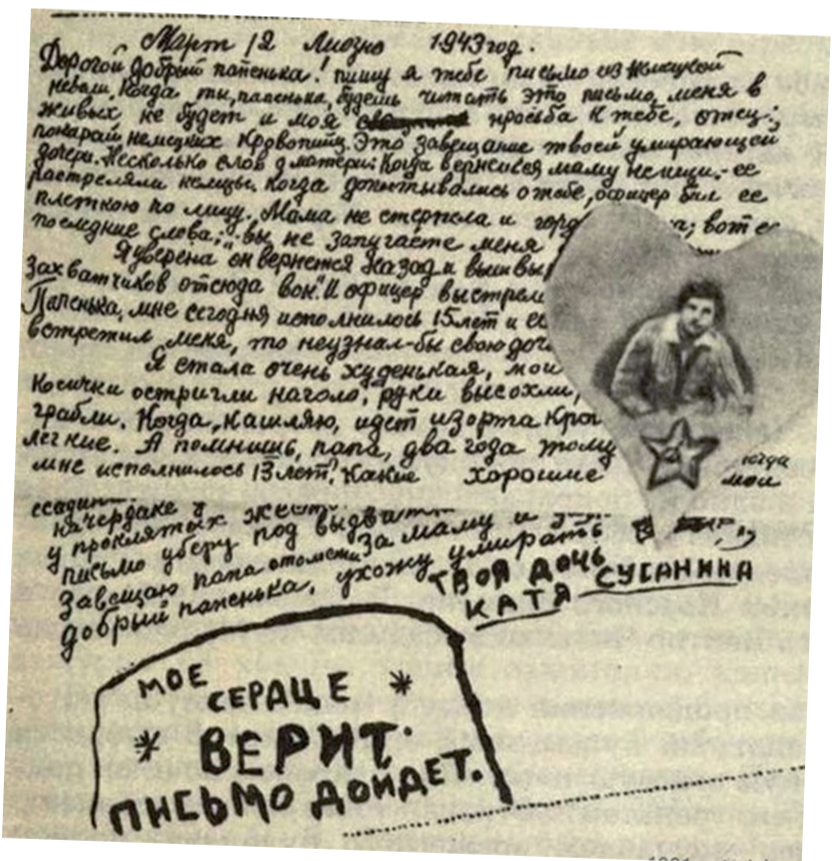 Март 12 Лиозно 1943 год.
Дорогой добрый папенька! пишу я тебе письмо из немецкой
неволи. Когда ты, папенька, будешь читать это письмо, меня в
живых не будет и моя просьба к тебе, отец:
покарай немецких кровопийц. Это завещание твоей умирающей
дочери. Несколько слов о матери: Когда вернешься маму не ищи,- ее
растреляли немцы. Когда допытывались о тебе, офицер бил ее
плеткою по лицу. Мама не стерпела и вот ее
последние слова: „вы не запугаете меня
Я уверена он вернется назад и
захватчиков отсюда вон." И офицер
Папенька, мне сегодня исполнилось 15 лет и
встретил меня, то неузнал-бы свою
Я стала очень худенькая, мои
косички остригли наголо, руки высохли,
грабли. Когда кашляю, идет изорта
легкие. А помнишь, папа, два года тому
мне исполнилось 13 лет? Какие хорошие
когда
мои
на чердаке
у проклятых
письмо уберу под
Завещаю папа отомсти за маму и
добрый папенька, ухожу умирать
ТВОЯ ДОЧЬ
КАТЯ СУСАНИНА
МОЕ
СЕРДЦЕ
ВЕРИТ.
ПИСЬМО ДОЙДЕТ.